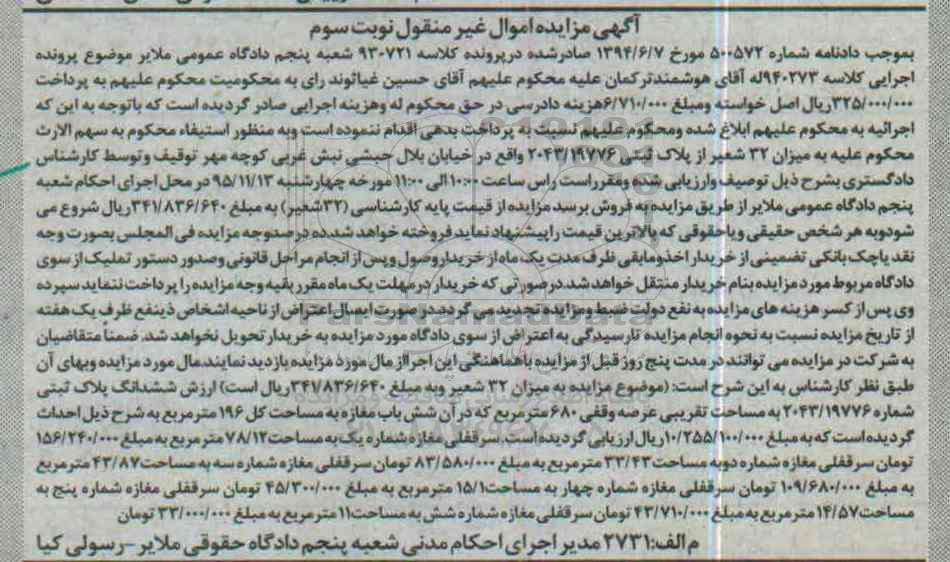 آگهی مزایده اموال غیر منقول نوبت سوم
بموجب دادنامه شماره ۵۰۰۵۷۲ مورخ ۱۳۹۴/۶/۷ صادرشده درپرونده کلاسه ۹۳۰۷۲۱ شعبه پنجم دادگاه عمومی ملایر موضوع پرونده
اجرایی کلاسه ۹۴۰۲۷۳له آقای هوشمندترکمان علیه محکوم علیهم آقای حسین غیاثوند رای به محکومیت محکوم علیهم به پرداخت
۳۲۵/۰۰۰/۰۰۰ریال اصل خواسته ومبلغ ۶/۷۱۰/۰۰۰هزینه دادرسی در حق محکوم له وهزینه اجرایی صادر گردیده است که باتوجه به این که
اجرائیه به محکوم علیهم ابلاغ شده ومحکوم علیهم نسبت به پرداخت بدهی اقدام ننموده است وبه منظور استیفاء محکوم به سهم الارث
محکوم علیه به میزان ۳۲ شعیر از پلاک ثبتی ۲۰۴۳/۱۹۷۷۶ واقع در خیابان بلال حبشی نبش غربی کوچه مهر توقیف وتوسط کارشناس
دادگستری بشرح ذیل توصیف وارزیابی شده ومقرراست راس ساعت ۱۰:۰۰الی ۱۱:۰۰ مورخه چهارشنبه ۹۵/۱۱/۱۳ در محل اجرای احکام شعبه
پنجم دادگاه عمومی ملایر از طریق مزایده به فروش برسد مزایده از قیمت پایه کارشناسی (۳۲شعیر) به مبلغ ۳۴۱/۸۳۶/۶۴۰ریال شروع می
شودوبه هر شخص حقیقی ویاحقوقی که بالاترین قیمت راپیشنهاد نماید فروخته خواهد شد.ده درصدوجه مزایده فی المجلس بصورت وجه
نقد یاچک بانکی تضمینی از خریدار اخذومابقی ظرف مدت یک ماه از خریداروصول وپس از انجام مراحل قانونی وصدور دستور تملیک از سوی
دادگاه مربوط مورد مزایده بنام خریدار منتقل خواهد شد.در صورتی که خریدار درمهلت یک ماه مقرر بقیه وجه مزایده را پرداخت ننماید سپرده
وی پس از کسر هزینه های مزایده به نفع دولت ضبط ومزایده تجدید می گردد.در صورت ایصال اعتراض از ناحیه اشخاص ذینفع ظرف یک هفته
از تاریخ مزایده نسبت به نحوه انجام مزایده تارسیدگی به اعتراض از سوی دادگاه مورد مزایده به خریدار تحویل نخواهد شد. ضمناً متقاضیان
به شرکت در مزایده می توانند در مدت پنج روز قبل از مزایده باهماهنگی این اجرااز مال مورد مزایده بازدید نمایند.مال مورد مزایده وبهای آن
طبق نظر کارشناس به این شرح است: (موضوع مزایده به میزان ۳۲ شعیر وبه مبلغ ۳۴۱/۸۳۶/۶۴۰ریال است) ارزش ششدانگ پلاک ثبتی
شماره ۲۰۴۳/۱۹۷۷۶ به مساحت تقریبی عرصه وقفی ۶۸۰ مترمربع که در آن شش باب مغازه به مساحت کل ۱۹۶ مترمربع به شرح ذیل احداث
گردیده است که به مبلغ ۱۰/۲۵۵/۱۰۰/۰۰۰ریال ارزیابی گردیده است.سرقفلی مغازه شماره یک به مساحت۷۸/۱۲ مترمربع به مبلغ ۱۵۶/۲۴۰/۰۰۰
تومان سرقفلی مغازه شماره دوبه مساحت۳۳/۴۳ مترمربع به مبلغ ۸۳/۵۸۰/۰۰۰ تومان سرقفلی مغازه شماره سه به مساحت۴۳/۸۷ مترمربع
به مبلغ ۱۰۹/۶۸۰/۰۰۰ تومان سرقفلی مغازه شماره چهار به مساحت۱۵/۱ مترمربع به مبلغ ۴۵/۳۰۰/۰۰۰ تومان سرقفلی مغازه شماره پنج به
مساحت۱۴/۵۷ مترمربع به مبلغ ۴۳/۷۱۰/۰۰۰ تومان سرقفلی مغازه شماره شش به مساحت۱۱ مترمربع به مبلغ ۳۳/۰۰۰/۰۰۰ تومان
م الف:۲۷۳۱ مدیر اجرای احکام مدنی شعبه پنجم دادگاه حقوقی ملایر -رسولی کیا